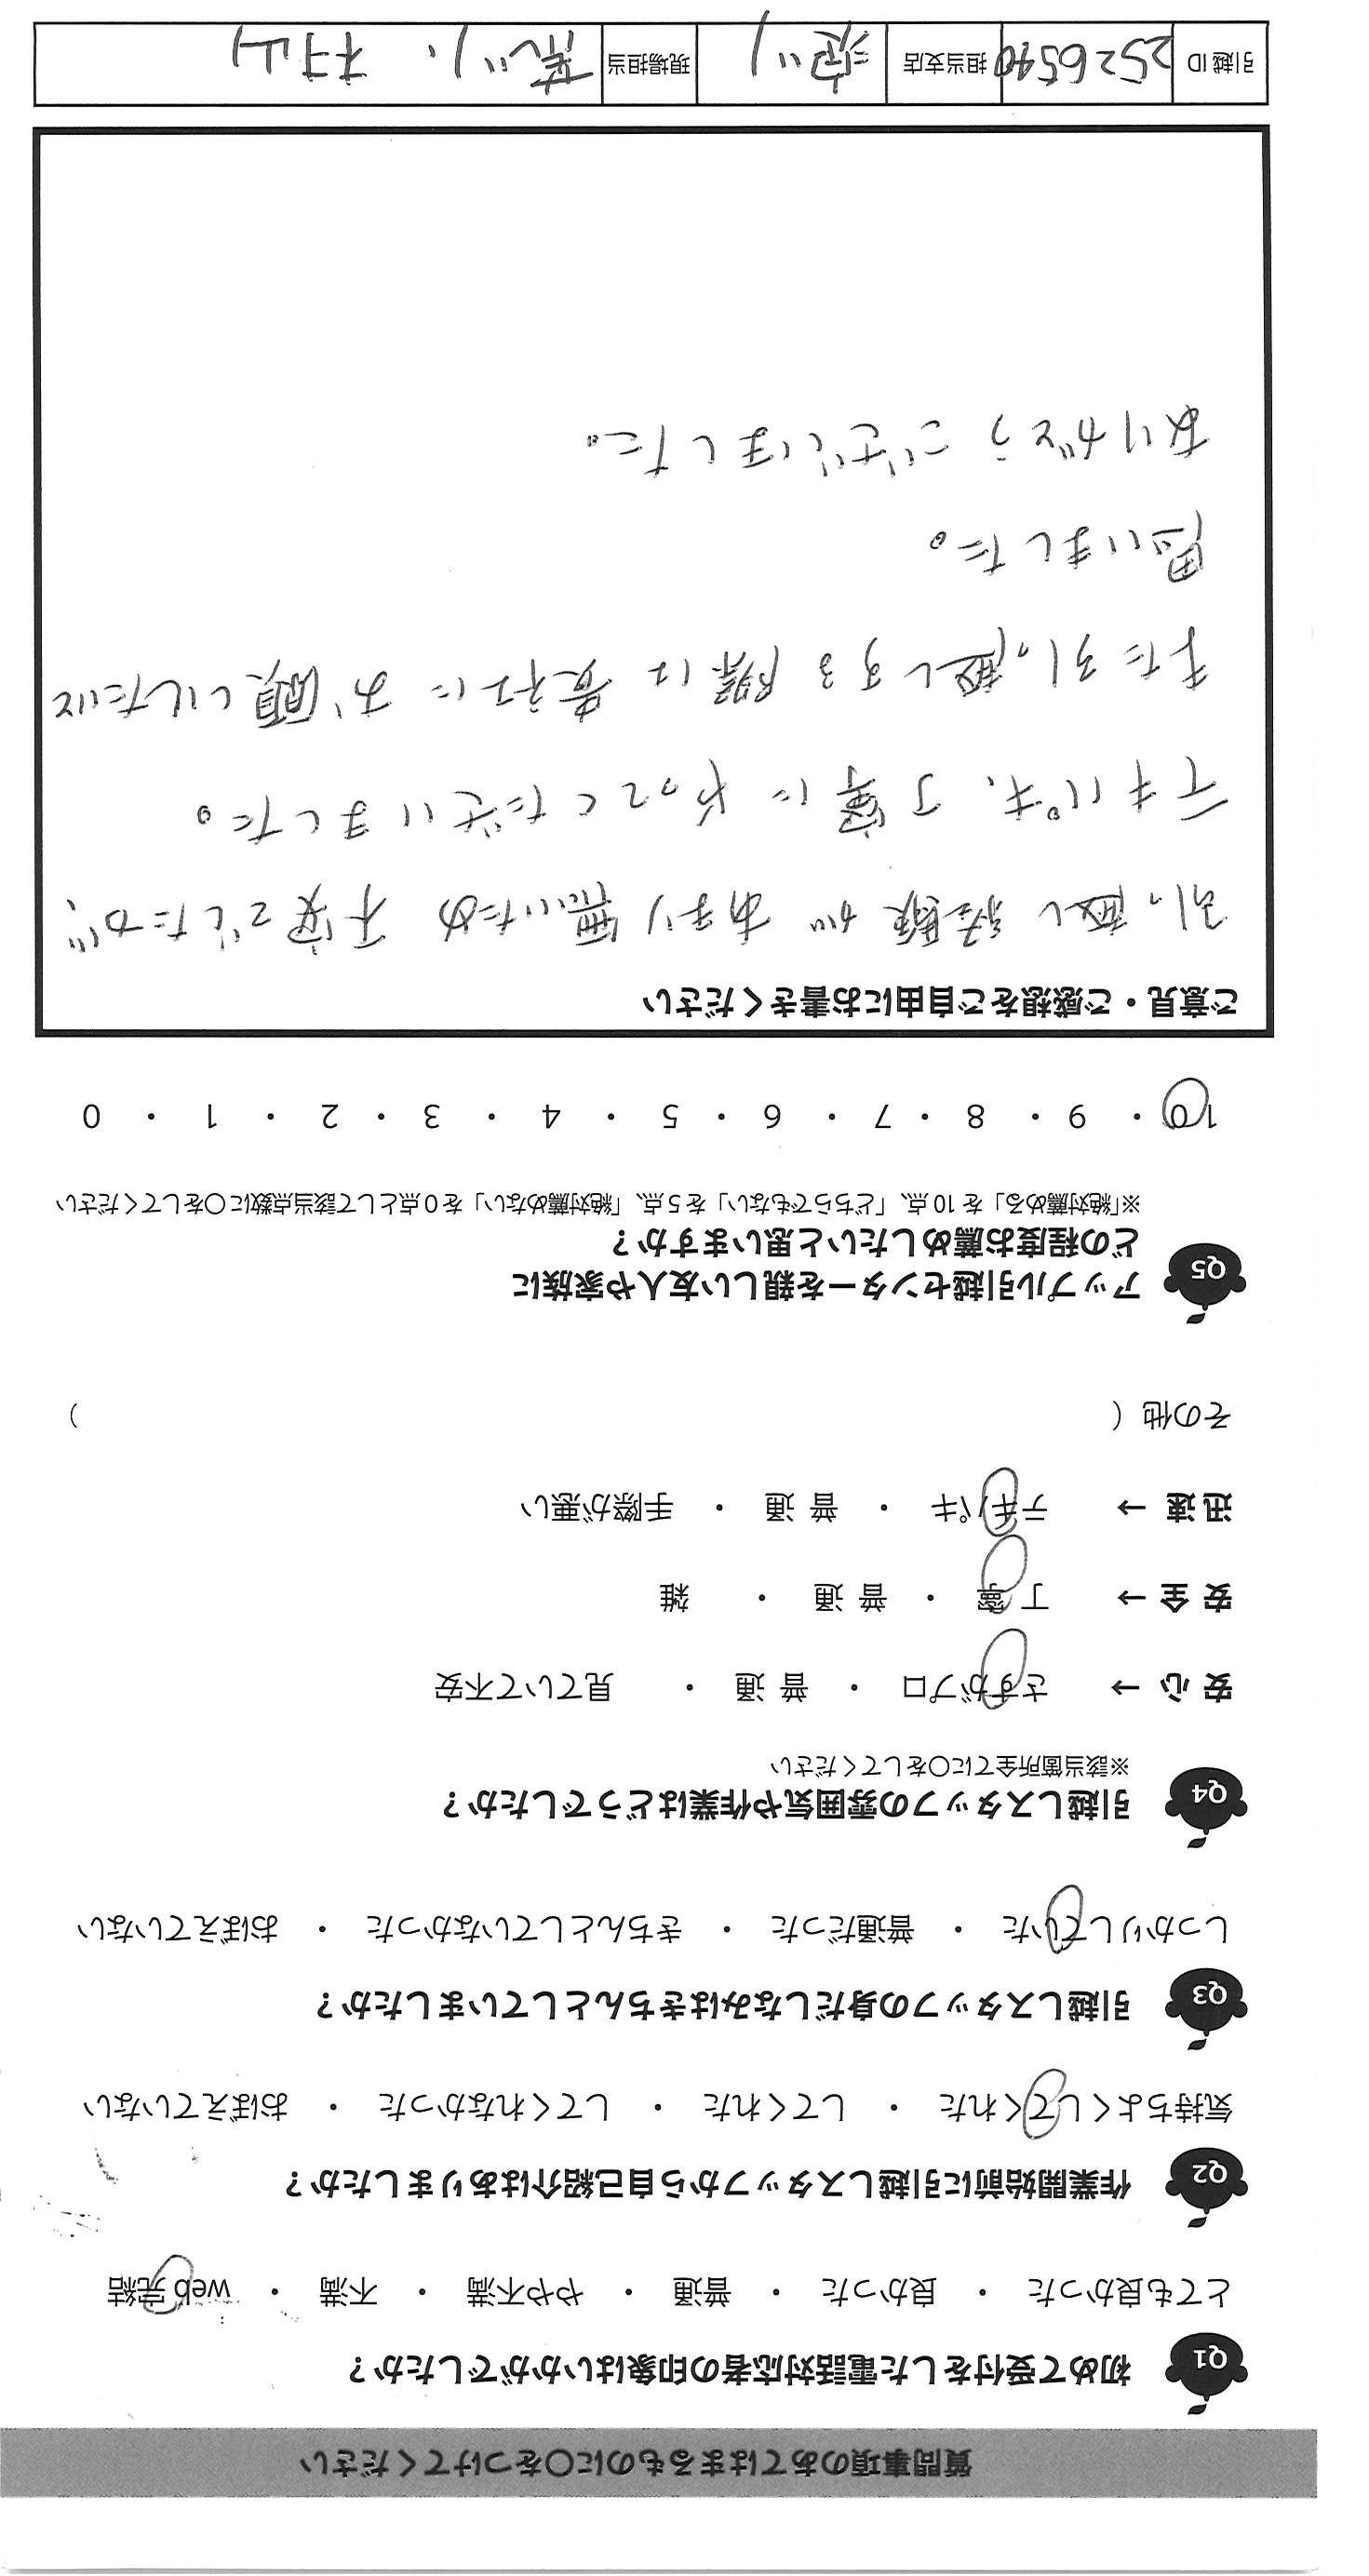 質問事項のあてはまるものに○をつけてください
Q1 初めて受付をした電話対応者の印象はいかがでしたか？
とても良かった ・ 良かった ・ 普通 ・ やや不満 ・ 不満 ・ web完結
Q2 作業開始前に引越しスタッフから自己紹介はありましたか？
気持ちよくしてくれた ・ してくれた ・ してくれなかった ・ おぼえていない
Q3 引越しスタッフの身だしなみはきちんとしていましたか？
しっかりしていた ・ 普通だった ・ きちんとしていなかった ・ おぼえていない
Q4 引越しスタッフの雰囲気や作業はどうでしたか？
※該当箇所全てに○をしてください
安心 → さすがプロ ・ 普通 ・ 見ていて不安
安全 → 丁寧 ・ 普通 ・ 雑
迅速 → テキパキ ・ 普通 ・ 手際が悪い
その他（ ）
Q5 アップル引越センターを親しい友人や家族に
どの程度お薦めしたいと思いますか？
※「絶対薦める」を10点、「どちらでもない」を5点、「絶対薦めない」を0点として該当点数に○をしてください
10 ・ 9 ・ 8 ・ 7 ・ 6 ・ 5 ・ 4 ・ 3 ・ 2 ・ 1 ・ 0
ご意見・ご感想をご自由にお書きください
引っ越し経験があまり無いため不安でしたが、
テキパキ、丁寧にやってくださいました。
また引っ越しする際は貴社にお願いしたいと
思いました。
ありがとうございました。
引越ID 2526540 担当支店 現場担当 村山